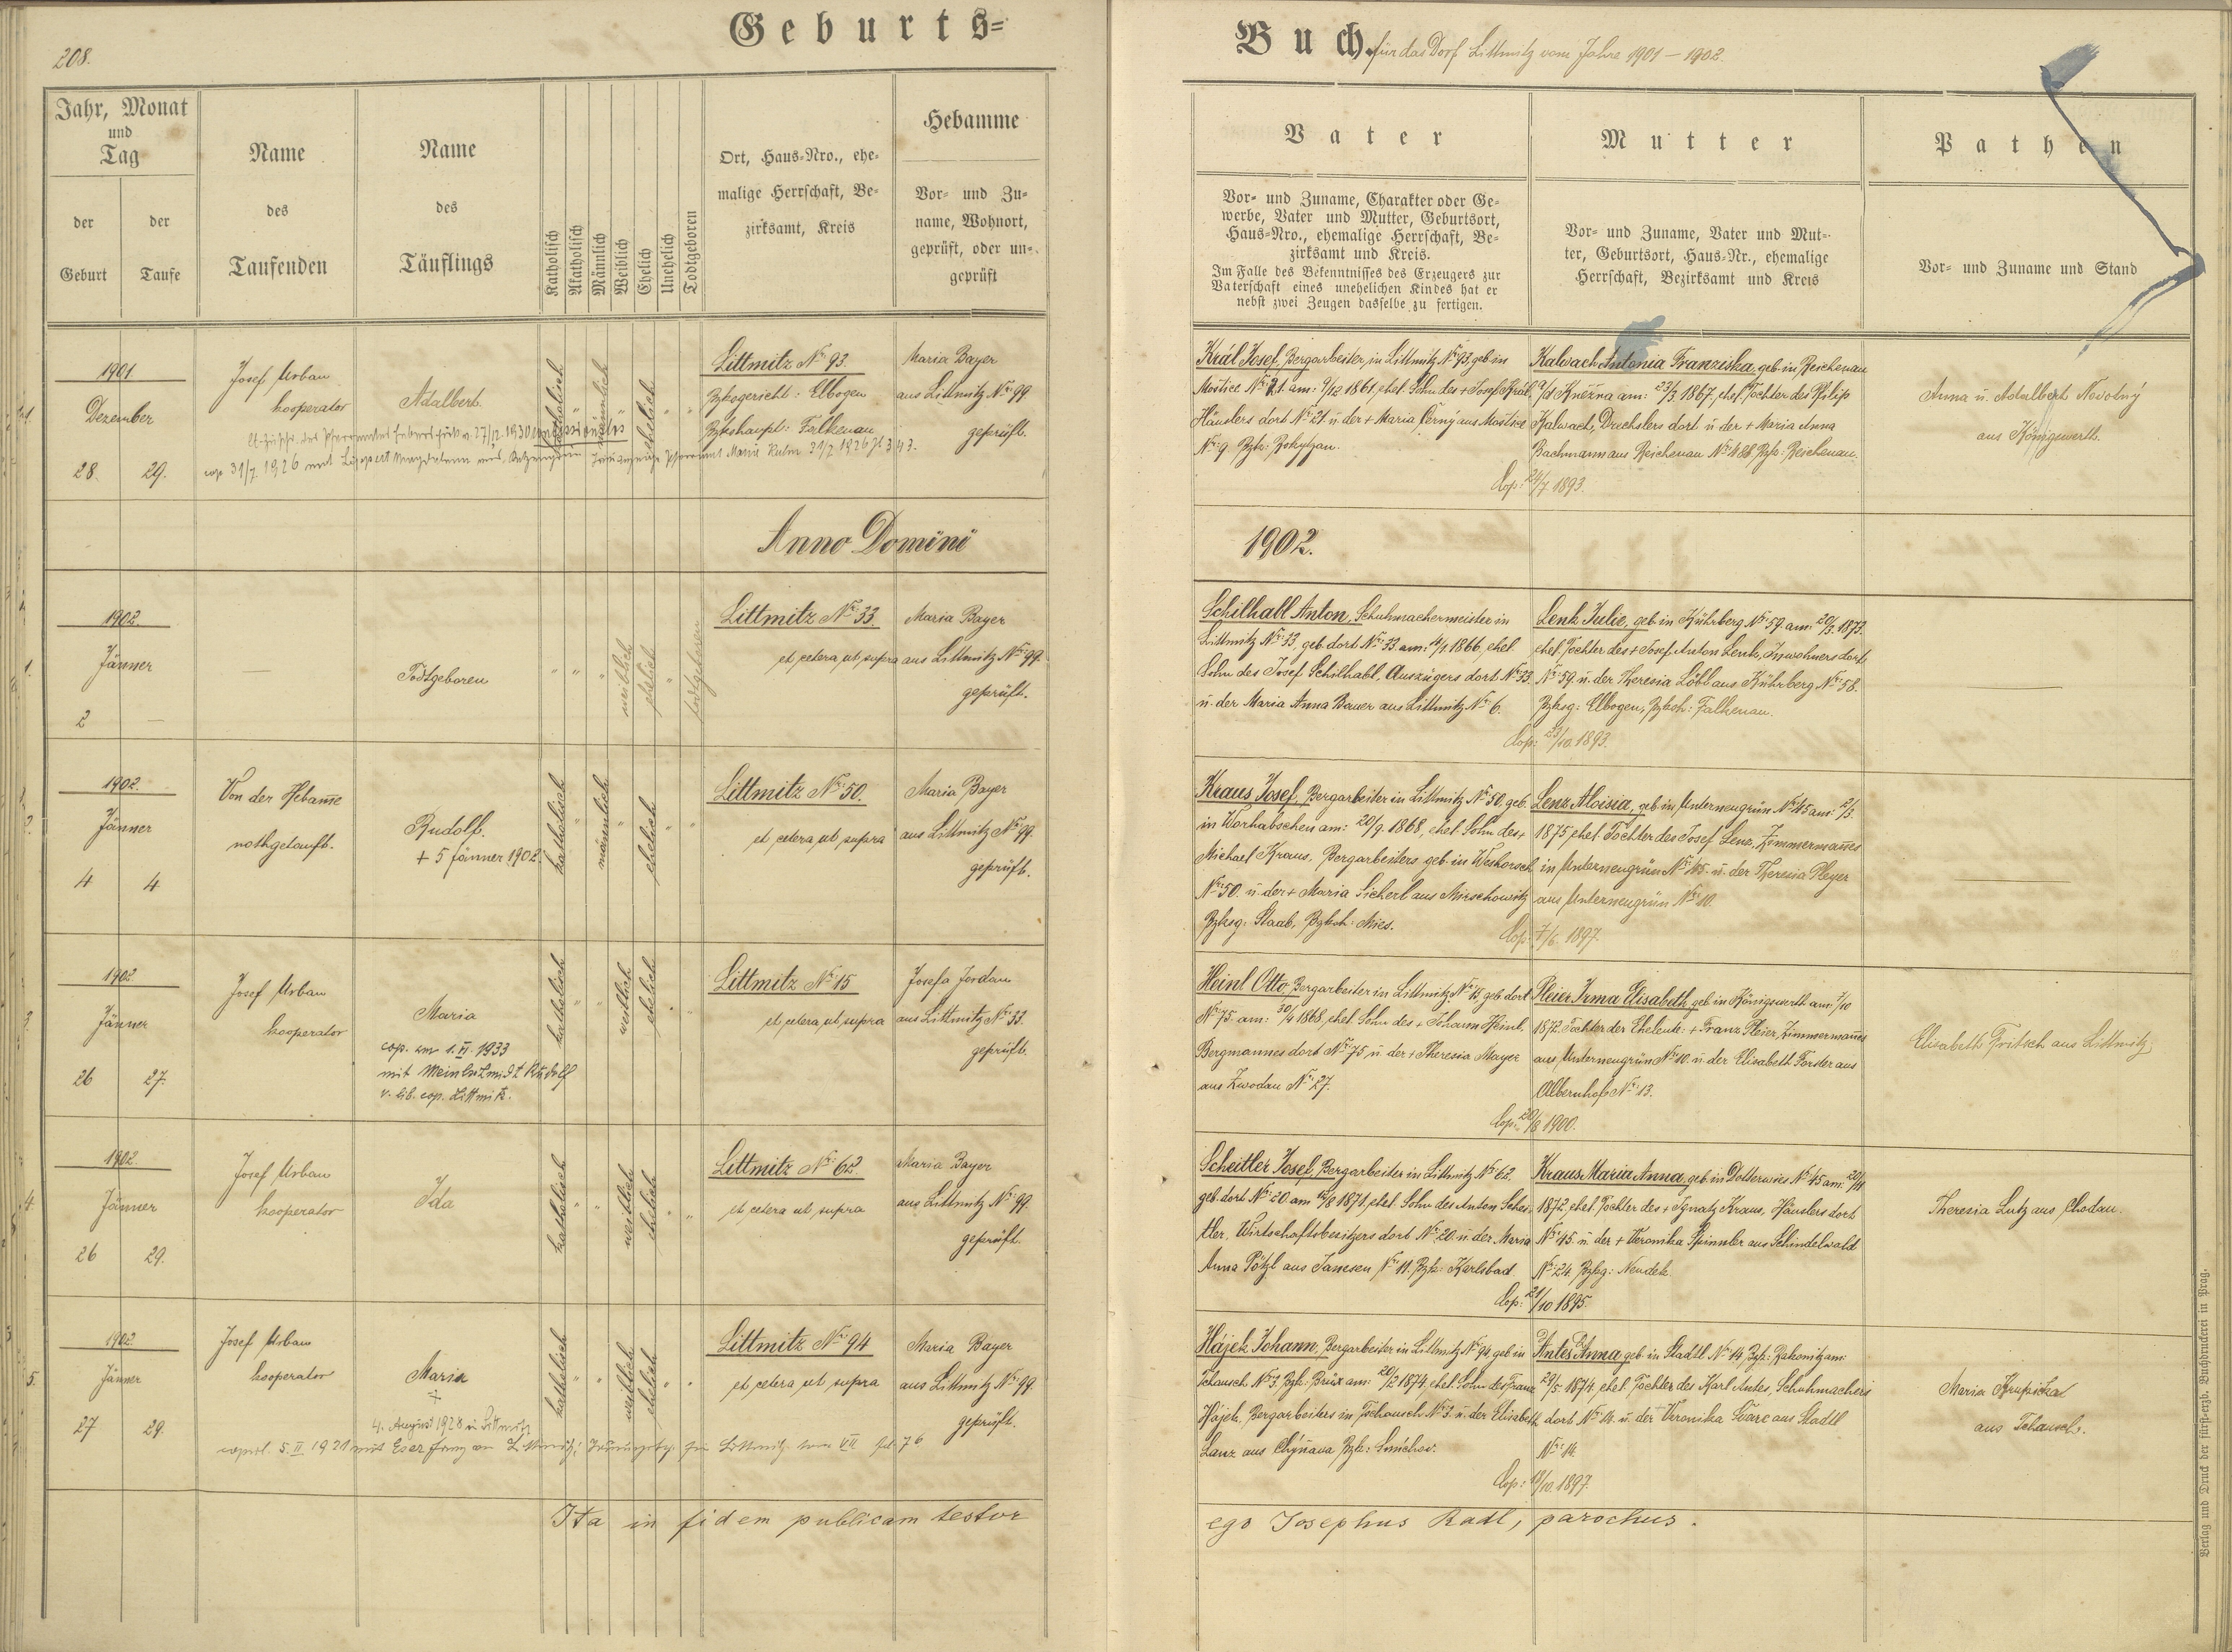 208.
Geburts=
Buch. für das Dorf Littmitz vom Jahre 1901 – 1902.
Jahr, Monat
und
Tag
der
Geburt
der
Taufe
Name
des
Taufenden
Name
des
Täuflings
Katholisch
Akatholisch
Männlich
Weiblich
Ehelich
Unehelich
Todtgeboren
Ort, Haus=Nro., ehe=
malige Herrschaft, Be=
zirksamt, Kreis
Hebamme
Vor= und Zu=
name, Wohnort,
geprüft, oder un=
geprüft
Vater
Vor= und Zuname, Charakter oder Ge=
werbe, Vater und Mutter, Geburtsort,
Haus=Nro., ehemalige Herrschaft, Be=
zirksamt und Kreis.
Im Falle des Bekenntnisses des Erzeugers zur
Vaterschaft eines unehelichen Kindes hat er
nebst zwei Zeugen dasselbe zu fertigen.
Mutter
Vor= und Zuname, Vater und Mut=
ter, Geburtsort, Haus=Nr., ehemalige
Herrschaft, Bezirksamt und Kreis
Pathen
Vor= und Zuname und Stand
1901
Dezember
28. 29.
Josef Urban
kooperator
Adalbert.
katholisch
männlich
ehelich
Littmitz No: 93.
Bzksgericht: Elbogen
Bzkshauptt: Falkenau
Maria Bayer
aus Littmitz No: 99.
geprüft.
cop. 31/7. 1926 mit
Pfarramt Maria Kulm 31/7 1926
Král Josef, Bergarbeiter, in Littmitz No: 93, geb. in
Mostice No: 21. am: 9/12 1861, ehel. Sohn des + Josef Král,
Häuslers dort No: 21. u. der + Maria Černý aus Mostice
No: 9. Bzk: Rokytzan.
Kalwach Antonia Franziska, geb. in Reichenau
a/d Kněžna am: 23/3. 1867, ehel. Tochter des Philip
Kalwach, Drechslers dort u. der + Maria Anna
Bachmann aus Reichenau No: 188, Bzk: Reichenau.
Cop: 24/7. 1893.
Anna u. Adalbert Novotný
aus Königswerth.
Anno Domini
1902.
1.
1902.
Jänner
2
Todtgeboren
weiblich
ehelich
todtgeboren
Littmitz No: 33.
et, cetera, ut, supra
Maria Bayer
aus Littmitz No: 99.
geprüft.
Schilhabl Anton, Schuhmachermeister in
Littmitz No: 33, geb. dort No: 33. am: 4/1. 1866, ehel.
Sohn des Josef Schilhabl, Auszügers dort No: 33.
u. der Maria Anna Bauer aus Littmitz No: 6.
Lenk Julie, geb. in Kührberg No: 59. am: 20/3. 1873.
ehel. Tochter des + Josef Anton Lenk, Inwohners dort,
No: 59. u. der Theresia Löbl aus Kührberg No: 58.
Bzksg: Elbogen, Bzksh: Falkenau.
Cop: 23/10. 1893.
2.
1902.
Jänner
4 4
Von der Hebame
nothgetauft.
Rudolf.
+ 5 Jänner 1902
katholisch
männlich
ehelich
Littmitz No: 50.
et, cetera, ut, supra
Maria Bayer
aus Littmitz No: 99.
geprüft.
Kraus Josef, Bergarbeiter in Littmitz No: 50, geb.
in Worhabschen am: 20/9. 1868, ehel. Sohn des +
Michael Kraus, Bergarbeiters geb. in
No: 50. u. der + Maria Sicherl aus Mirschowitz
Bzksg: Staab, Bzksh: Mies.
Lenz Aloisia, geb. in Unterneugrün No: 45 am: 2/3.
1875, ehel. Tochter des Josef Lenz, Zimmermanes
in Unterneugrün No: 45. u. der Theresia Pleyer
aus Unterneugrün No: 10.
Cop: 7/6. 1897.
3.
1902
Jänner
26 27.
Josef Urban
kooperator
Maria
cop. am 1. VI. 1933
mit Meinlschmidt Rudolf
v. lib. cop. Littmitz.
katholisch
weiblich
ehelich
Littmitz No: 15
et, cetera, ut, supra
Josefa Jordan
aus Littmitz No: 33.
geprüft.
Heinl Otto, Bergarbeiter in Littmitz No: 15, geb. dort
No: 75. am: 30/4 1868, ehel. Sohn des + Johann Heinl,
Bergmannes dort No: 75 u. der + Theresia Mayer
aus Zwodau No: 27.
Pleier Irma Elisabeth, geb. in Königswerth am: 7/10
1872. Tochter der Eheleute: + Franz Pleier, Zimmermanes
aus Unterneugrün No: 10. u. der Elisabeth Forster aus
Albernhof No: 13.
Cop: 20/8 1900.
Elisabeth Fritsch aus Littmitz.
4.
1902.
Jänner
26 29.
Josef Urban
kooperator
Ida
katholisch
weiblich
ehelich
Littmitz No: 62.
et, cetera ut, supra
Maria Bayer
aus Littmitz No: 99.
geprüft.
Scheitler Josef, Bergarbeiter in Littmitz No: 62,
geb. dort No: 20 am 12/8 1871, ehel. Sohn des Anton Schei-
tler, Wirtschaftsbesitzers dort No: 20. u. der Maria
Anna Pötzl aus Janesen No: 11. Bzk: Karlsbad
Kraus Maria Anna, geb. in Dotterwies No: 45 am: 20/11
1872, ehel. Tochter des + Ignatz Kraus, Häuslers dort
No: 45. u. der + Veronika Spinnler aus Schindelwald
No: 24. Bzksg: Neudek.
Cop: 21/10 1895.
Theresia Lutz aus Chodau.
5.
1902.
Jänner
27 29.
Josef Urban
kooperator
Maria
+
4. August 1928 in Littmitz
copul. 5. II. 1921 mit Eser Franz in Littmitz; VII fol. 76
katholisch
weiblich
ehelich
Littmitz No: 94
et, cetera, ut supra
Maria Bayer
aus Littmitz No: 99.
geprüft.
Hájek Johann, Bergarbeiter in Littmitz No: 94, geb. in
Tschausch No: 3. Bzk: Brüx am: 20/2 1874, ehel. Sohn des Franz
Hájek, Bergarbeiters in Tschausch No: 3. u. der Elisabeth
Lanz aus Chýňava Bzk: Smíchov.
Antes Anna, geb. in Stadtl No: 14 Bzk: Rakonitz am:
29/5. 1874, ehel. Tochter des Karl Antes, Schuhmachers
dort No: 14. u. der Veronika Švarc aus Stadtl
No: 14.
Cop: 18/10. 1897.
Maria Krupička
aus Tschausch.
Ita in fidem publicam testor
ego Josephus Radl, parochus.
Verlag und Druck der fürst=erzb. Buchdruckerei in Prag.